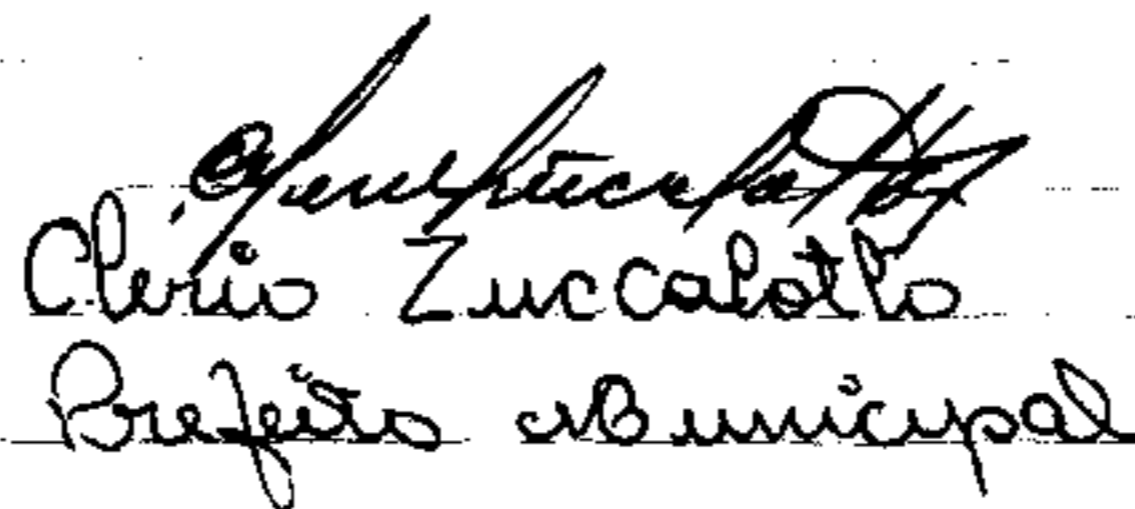 Clerio Zuccalotto
Prefeito Municipal